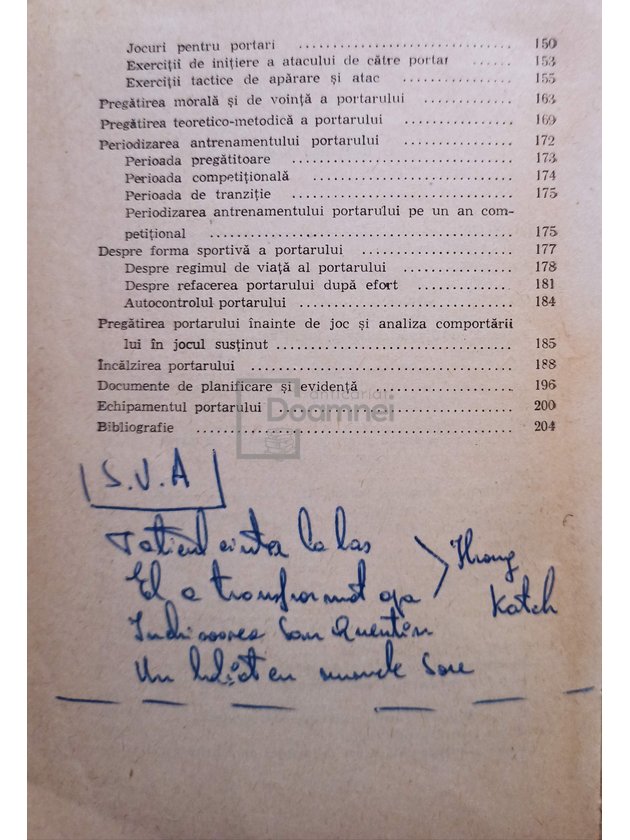 Jocuri pentru portari .......... 150
Exerciții de inițiere a atacului de către portar ...... 153
Exerciții tactice de apărare și atac .......... 155
Pregătirea morală și de voință a portarului .......... 163
Pregătirea teoretico-metodică a portarului .......... 169
Periodizarea antrenamentului portarului .......... 172
Perioada pregătitoare .......... 173
Perioada competițională .......... 174
Perioada de tranziție .......... 175
Periodizarea antrenamentului portarului pe un an com-
petițional .......... 175
Despre forma sportivă a portarului .......... 177
Despre regimul de viață al portarului .......... 178
Despre refacerea portarului după efort .......... 181
Autocontrolul portarului .......... 184
Pregătirea portarului înainte de joc și analiza comportării
lui în jocul susținut .......... 185
Încălzirea portarului .......... 188
Documente de planificare și evidență .......... 196
anticariat
Doamnei
Echipamentul portarului .......... 200
Bibliografie .......... 204
S.V.A
la
El a transformat apa
Katch
Închisoarea San Quentin
Un numele Sou